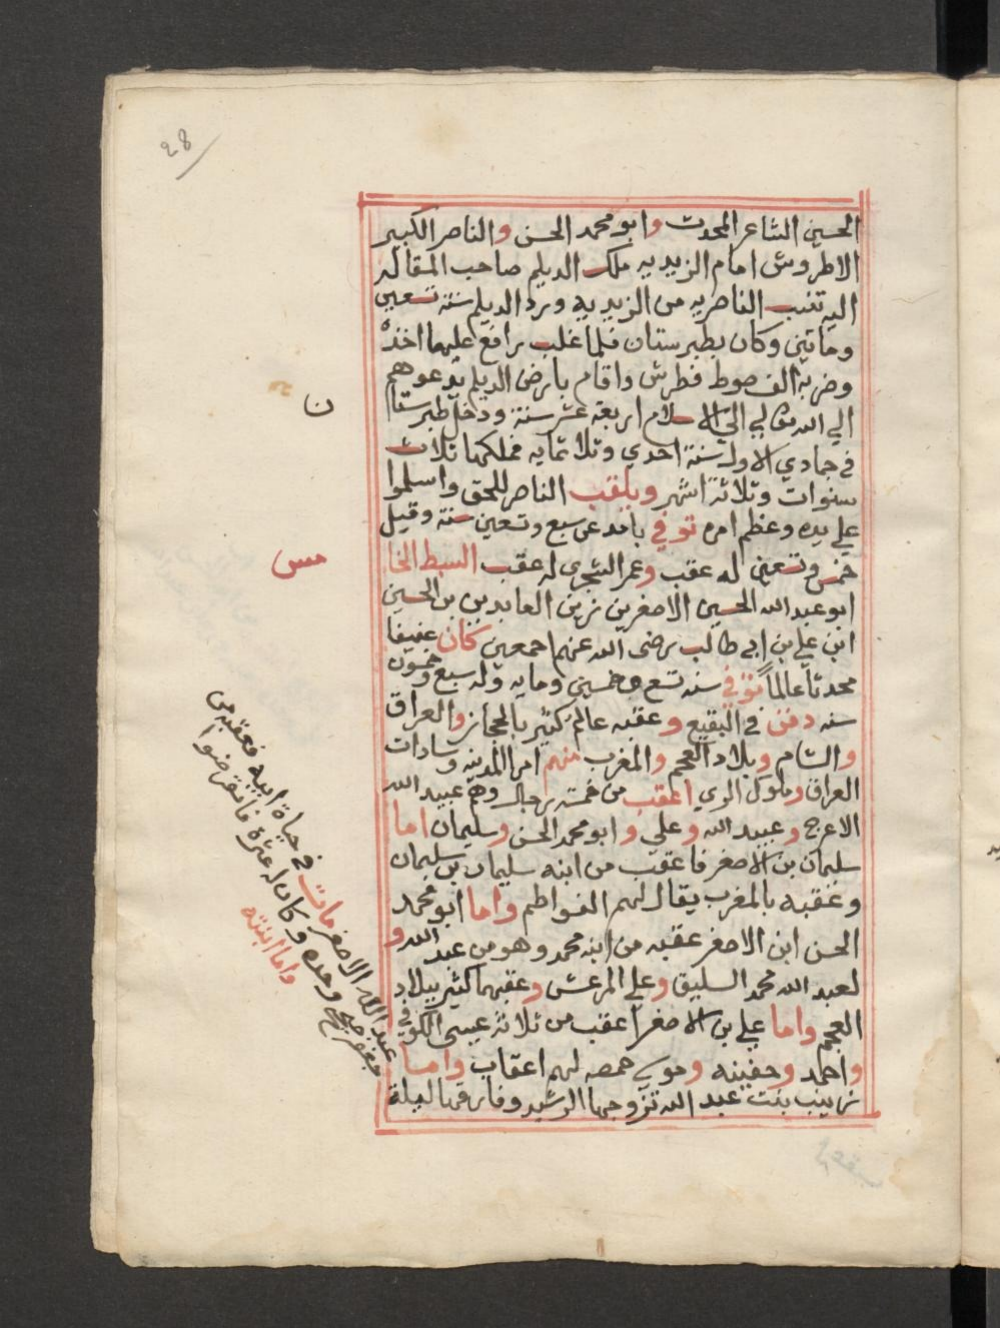 28
الحسين الشاعر المحدث وابو محمد الحسن والناصر الكبير
الاطروش امام الزيديه ملك الديلم صاحب المقاله
اليه تنسب الناصريه من الزيديه ورد الديلم سنة تسعين
وماتين وكان بطبرستان فلما غلب رافع عليها اخذه
وضربه الف صوط فطرش واقام بارض الديلم يدعوهم
الي الله تعالي الي الاسلام اربعة عشر سنة ودخل طبرستا
ن
في جمادي الاول سنة احدي وثلاثمايه فملكها ثلاث
سنوات وثلاثة اشهر ويلقب الناصر للحق واسلموا
علي يده وعظم امره توفي بامد عن سبع وتسعين سنة وقيل
خمس وتسعين له عقب وعمر الشجري له عقب السبط الخا
مس
ابو عبد الله الحسين الاصغر بن زين العابدين بن الحسين
ابن علي بن ابي طالب رضي الله عنهم اجمعين كان عفيفا
محدثا عالما توفي سنه تسع وخمسين ومايه وله سبع وخمسون
سنه دفن في البقيع وعقبه عالم كثير بالحجاز والعراق
والشام وبلاد العجم والمغرب منهم امرا المدينه وسادات
العراق وملوك الري اعقب من خمسة رجال وهم عبيد الله
الاعرج وعبد الله وعلي وابو محمد الحسن وسليمان اما
سليمان بن الاصغر فاعقب من ابنه سليمان بن سليمان
وعقبه بالمغرب يقال لهم الفواطم واما ابو محمد
الحسن ابن الاصغر عقبه من ابنه محمد وهو من عبد الله و
لعبد الله محمد السليق وعلي المرعش وعقبهما كثير ببلاد
العجم واما علي بن الاصغر اعقب من ثلاثة عيسي الكوفي
واحمد وحفينه وموسي حمصه لهم اعقاب واما
زينب بنت عبد الله تزوجها الرشيد وفارقها ليلة
عبد الله الاصغر مات في حياة ابيه فعقبه من
جعفر صحيح وحده وكان له عشرة فانقرضوا
واما ابنته